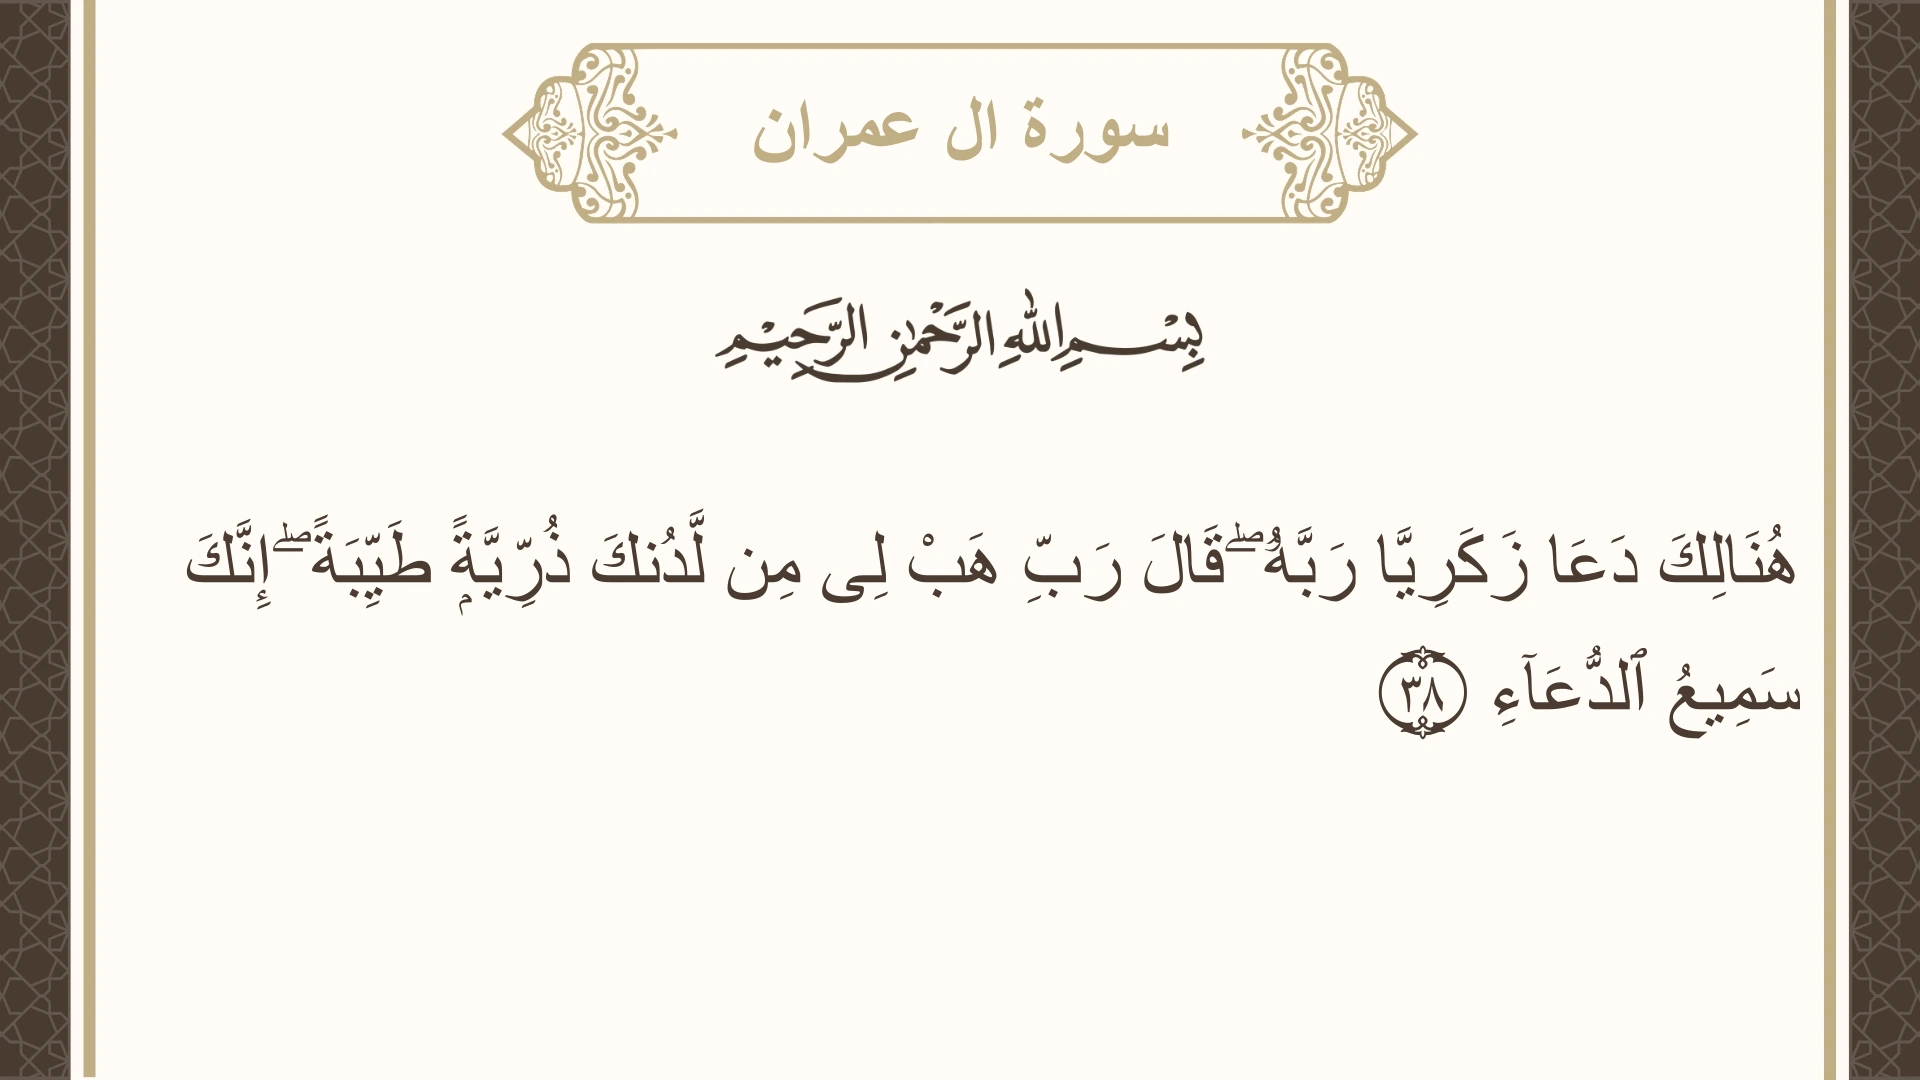 سورة ال عمران
بِسْمِ اللهِ الرَّحْمٰنِ الرَّحِيْمِ
هُنَالِكَ دَعَا زَكَرِيَّا رَبَّهُۥ ۖ قَالَ رَبِّ هَبْ لِى مِن لَّدُنكَ ذُرِّيَّةًۭ طَيِّبَةً ۖ إِنَّكَ
سَمِيعُ ٱلدُّعَآءِ ٣٨